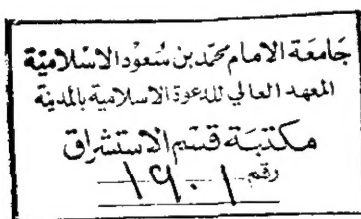 جامعة الامام محمد بن سعود الاسلامية
المعهد العالي للدعوة الاسلامية بالمدينة
مكتبة قسم الاستشراق
رقم
١٩٠١